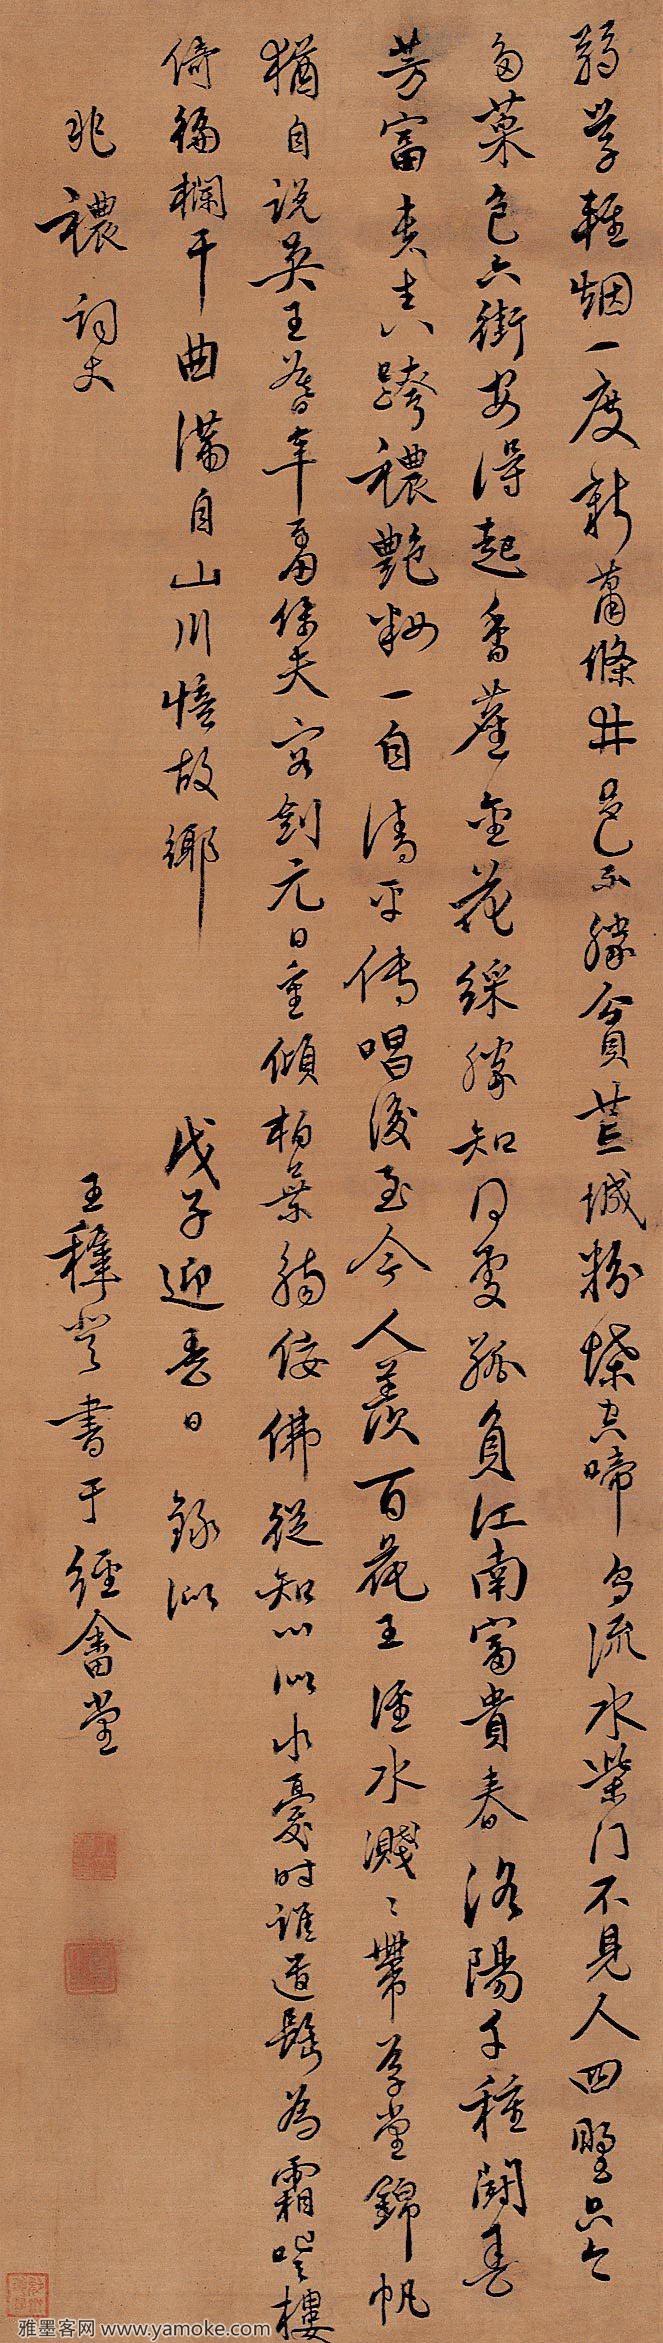 弱草輕烟一度新蕭條井邑不勝貧蕪城粉堞空啼鳥流水柴門不見人四野只今
多菜色六街安得起香塵金花綵勝知何處孤負江南富貴春洛陽千種鬪春
芳富貴真誇穠艷妝一自清平傳唱後至今人羨百花王涇水濺濺帶草堂錦帆
猶自説吳王舊年留得夫容劍元日重傾栢葉觴佞佛從知心似水憂時誰道鬢為霜樓
倚徧欄干曲滿目山川憶故鄉
戊子迎春日錄似
兆穠詞丈
王穉登書于經畬堂
雅墨客网 www.yamoke.com